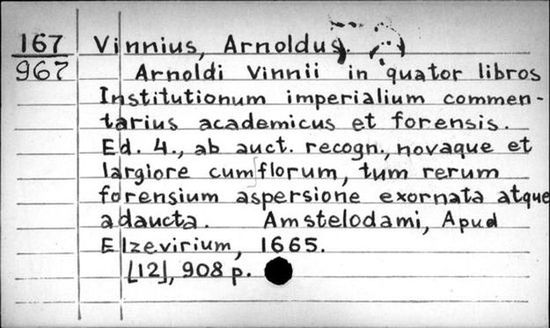 167 Vinnius, Arnoldus.
967 Arnoldi Vinnii in quator libros
Institutionum imperialium commen-
tarius academicus et forensis.
Ed. 4., ab auct. recogn., novaque et
largiore cum florum, tum rerum
forensium aspersione exornata atque
adaucta. Amstelodami, Apud
Elzevirium, 1665.
[12], 908 p.